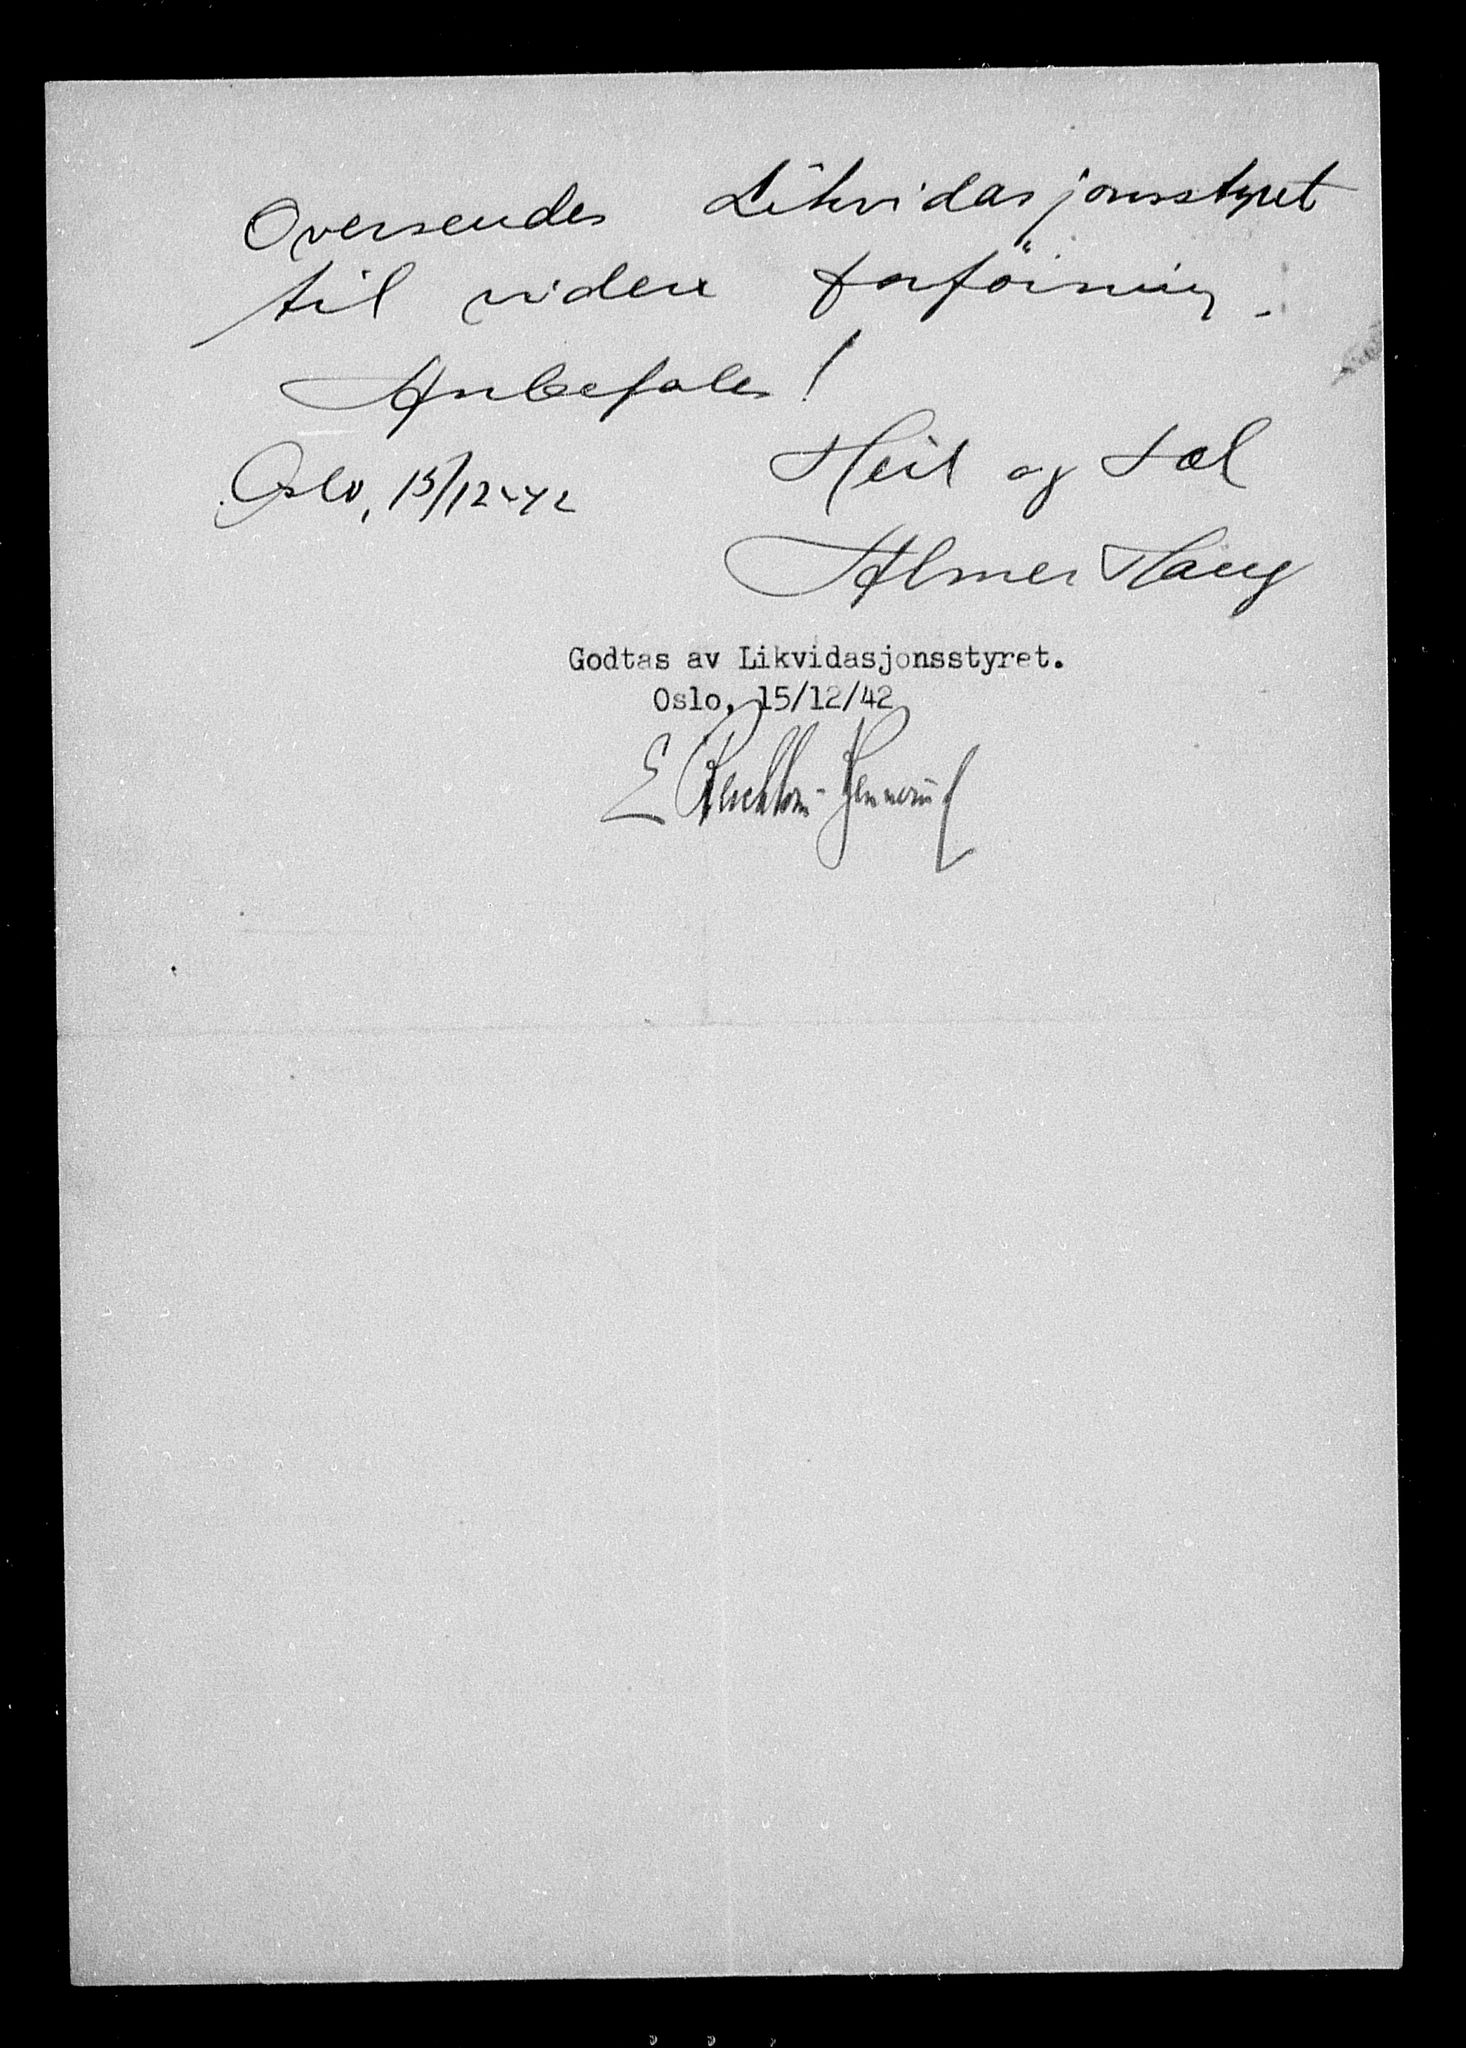 Oversendes Likvidasjonsstyret
til videre forföining.
Anbefales!
Oslo, 15/12-42
Heil og Sæl
Almer Haug
Godtas av Likvidasjonsstyret.
Oslo, 15/12/42
E